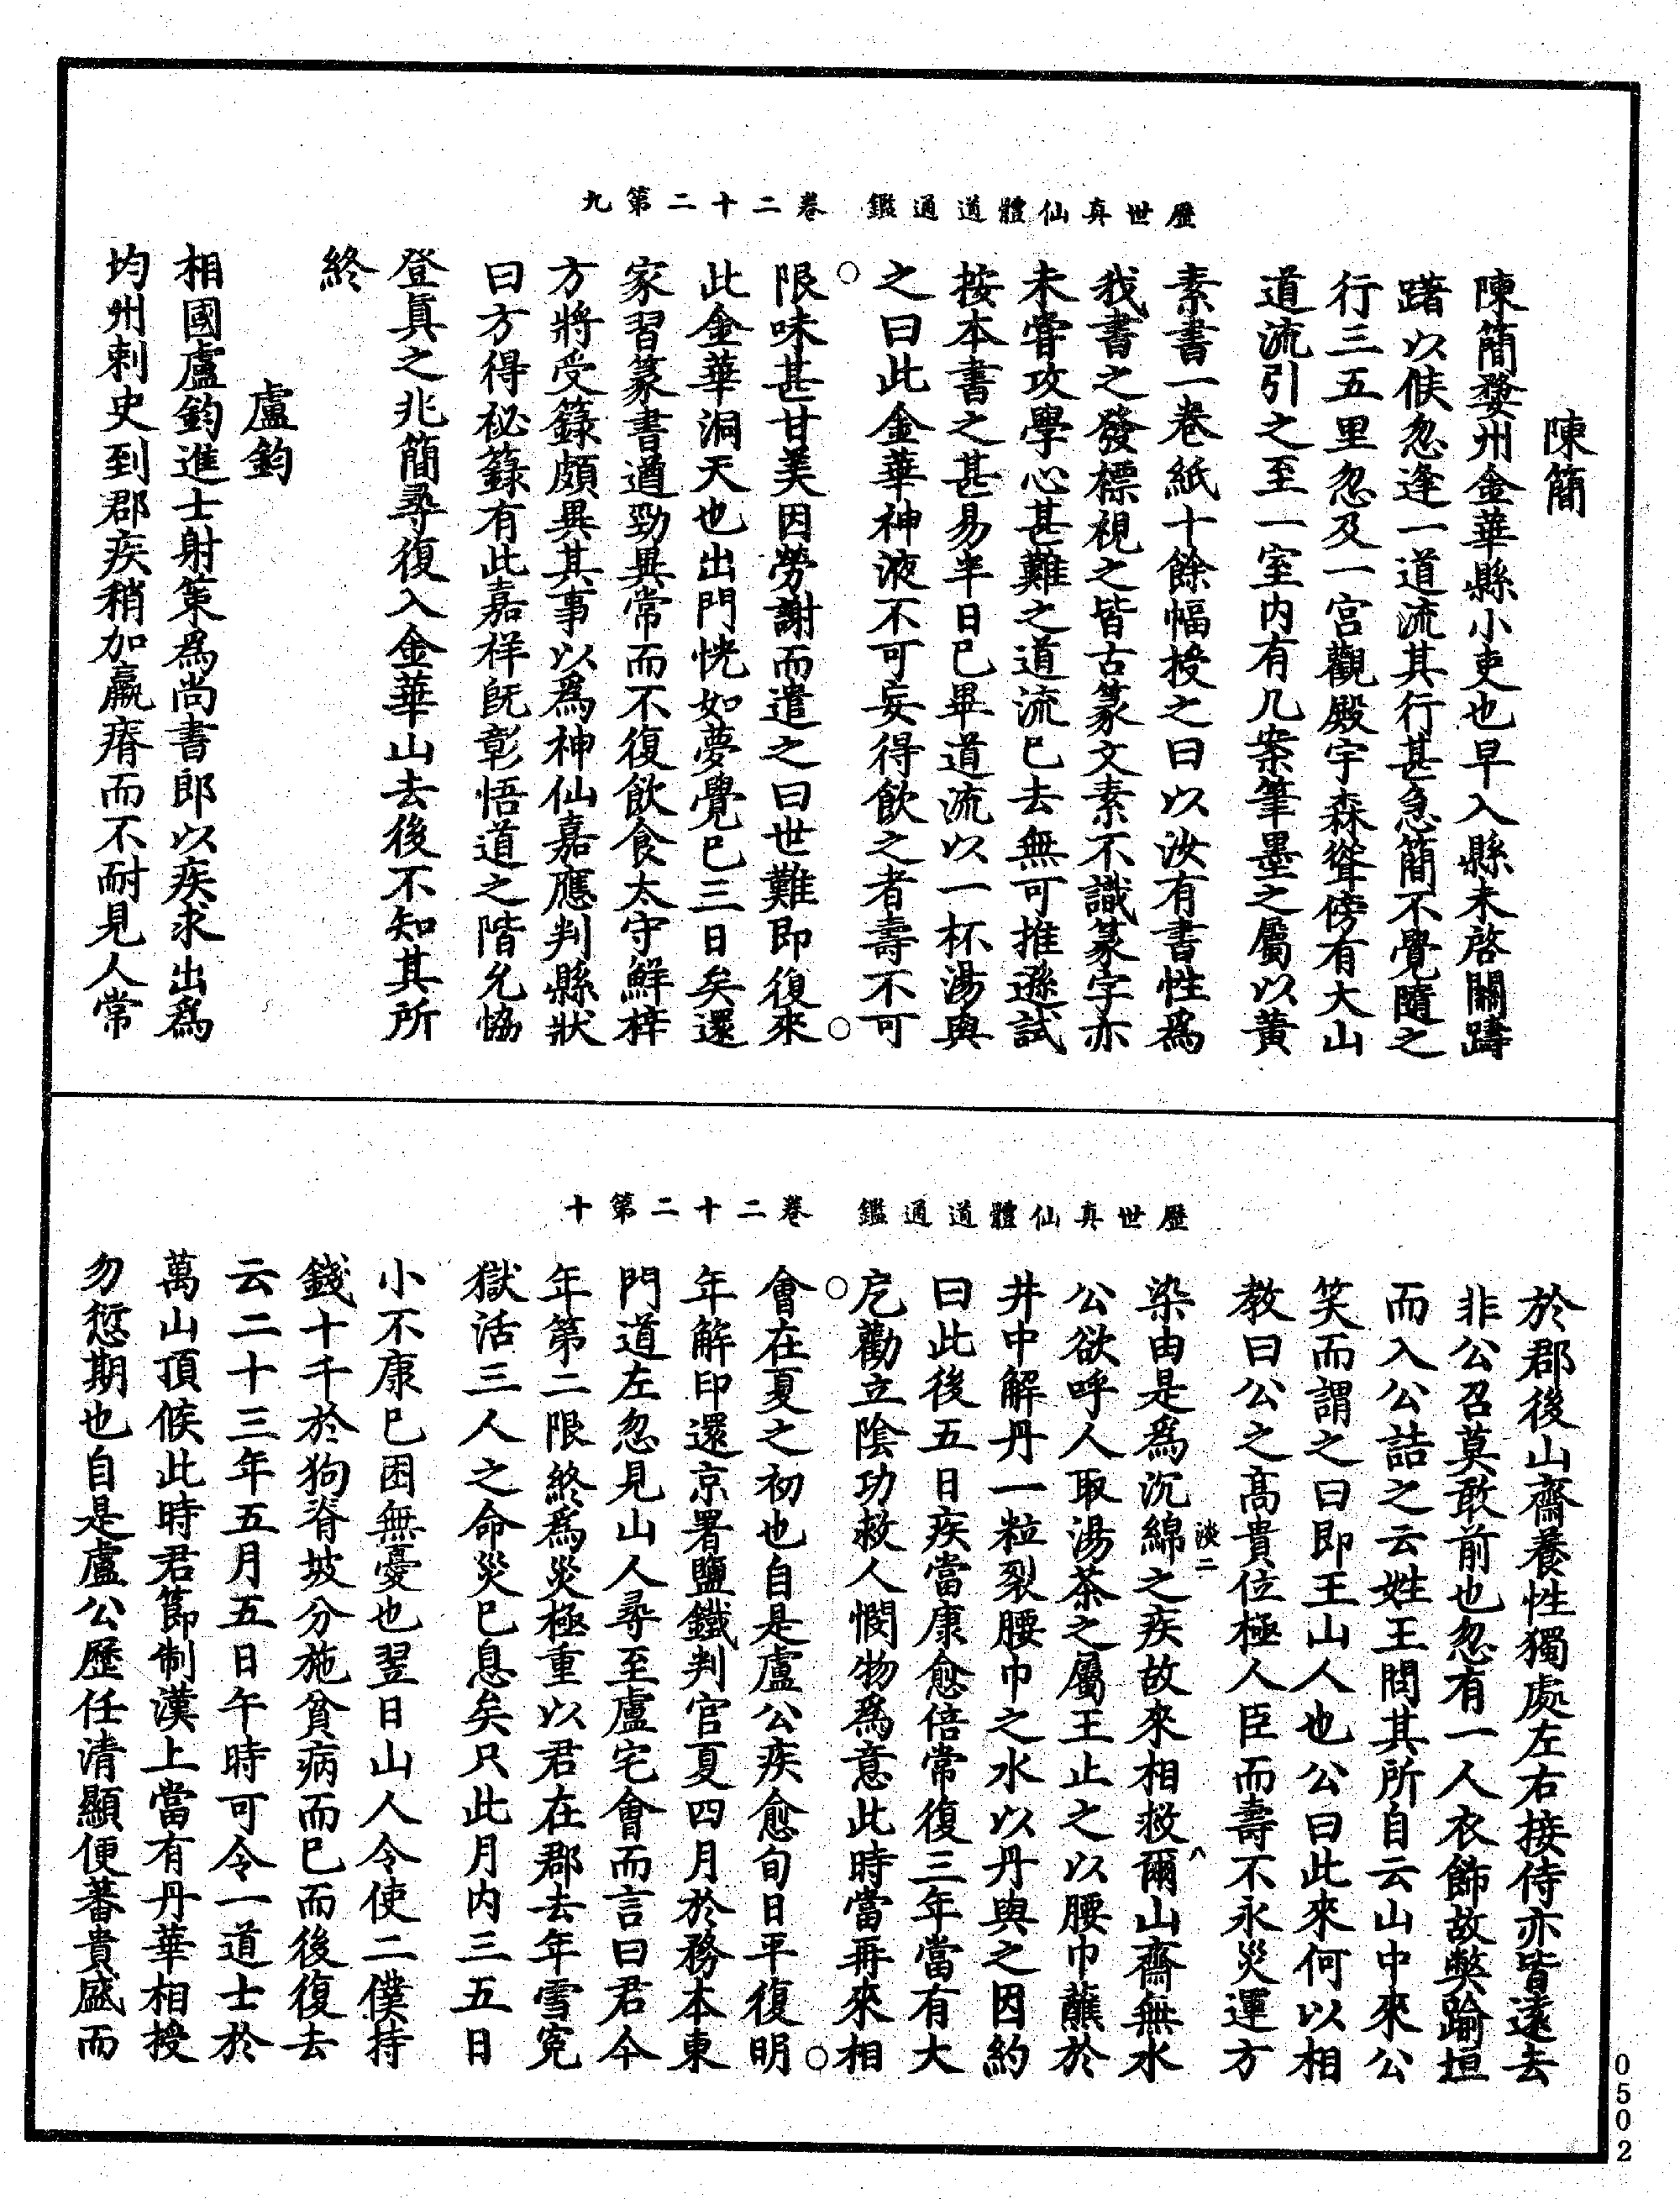 歷世真仙體道通鑑　卷二十二第九
陳簡
陳簡婺州金華縣小吏也早入縣未啓關躊
躇以俟忽逢一道流其行甚急簡不覺隨之
行三五里忽及一宮觀殿宇森聳傍有大山
道流引之至一室內有几案筆墨之屬以黃
素書一卷紙十餘幅授之曰以汝有書性為
我書之發標視之皆古篆文素不識篆字亦
未嘗攻學心甚難之道流已去無可推遜試
按本書之甚易半日已畢道流以一杯湯與
之曰此金華神液不可妄得飲之者壽不可
限味甚甘美因勞謝而遣之曰世難即復來
此金華洞天也出門恍如夢覺已三日矣還
家習篆書遒勁異常而不復飲食太守鮮梓
方將受籙頗異其事以為神仙嘉應判縣狀
曰方得祕籙有此嘉祥旣彰悟道之階允協
登真之兆簡尋復入金華山去後不知其所
終
盧鈞
相國盧鈞進士射策為尚書郎以疾求出為
均州刺史到郡疾稍加羸瘠而不耐見人常
歷世真仙體道通鑑　卷二十二第十
於郡後山齋養性獨處左右接侍亦皆遠去
非公召莫敢前也忽有一人衣飾故弊踰垣
而入公詰之云姓王問其所自云山中來公
笑而謂之曰即王山人也公曰此來何以相
教曰公之高貴位極人臣而壽不永災運方
染由是為沉綿之疾故來相救爾山齋無水
公欲呼人取湯茶之屬王止之以腰巾蘸於
井中解丹一粒裂腰巾之水以丹與之因約
曰此後五日疾當康愈倍常復三年當有大
戹勸立陰功救人憫物為意此時當再來相
會在夏之初也自是盧公疾愈旬日平復明
年解印還京署鹽鐵判官夏四月於務本東
門道左忽見山人尋至盧宅會而言曰君今
年第二限終為災極重以君在郡去年雪冤
獄活三人之命災已息矣只此月內三五日
小不康已困無憂也翌日山人令使二僕持
錢十千於狗脊坡分施貧病而已而後復去
云二十三年五月五日午時可令一道士於
萬山頂候此時君節制漢上當有丹華相授
勿愆期也自是盧公歷任清顯便蕃貴盛而
淡二
0502